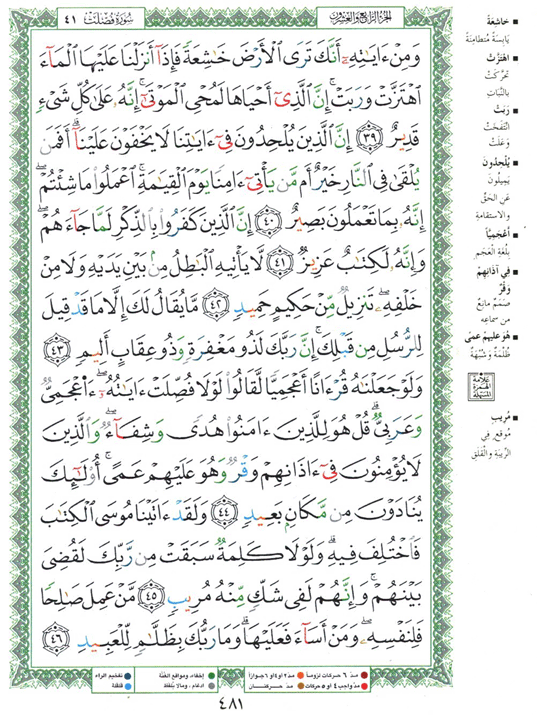 الجزء الرابع والعشرون
سورة فصلت ٤١
وَمِنْ ءَايَٰتِهِۦٓ أَنَّكَ تَرَى ٱلْأَرْضَ خَٰشِعَةً فَإِذَآ أَنزَلْنَا عَلَيْهَا ٱلْمَآءَ
ٱهْتَزَّتْ وَرَبَتْ ۚ إِنَّ ٱلَّذِىٓ أَحْيَاهَا لَمُحْىِ ٱلْمَوْتَىٰٓ ۚ إِنَّهُۥ عَلَىٰ كُلِّ شَىْءٍ
قَدِيرٌ ٣٩ إِنَّ ٱلَّذِينَ يُلْحِدُونَ فِىٓ ءَايَٰتِنَا لَا يَخْفَوْنَ عَلَيْنَآ ۗ أَفَمَن
يُلْقَىٰ فِى ٱلنَّارِ خَيْرٌ أَم مَّن يَأْتِىٓ ءَامِنًا يَوْمَ ٱلْقِيَٰمَةِ ۚ ٱعْمَلُوا۟ مَا شِئْتُمْ ۖ
إِنَّهُۥ بِمَا تَعْمَلُونَ بَصِيرٌ ٤٠ إِنَّ ٱلَّذِينَ كَفَرُوا۟ بِٱلذِّكْرِ لَمَّا جَآءَهُمْ ۖ
وَإِنَّهُۥ لَكِتَٰبٌ عَزِيزٌ ٤١ لَّا يَأْتِيهِ ٱلْبَٰطِلُ مِنۢ بَيْنِ يَدَيْهِ وَلَا مِنْ
خَلْفِهِۦ ۖ تَنزِيلٌ مِّنْ حَكِيمٍ حَمِيدٍ ٤٢ مَّا يُقَالُ لَكَ إِلَّا مَا قَدْ قِيلَ
لِلرُّسُلِ مِن قَبْلِكَ ۚ إِنَّ رَبَّكَ لَذُو مَغْفِرَةٍ وَذُو عِقَابٍ أَلِيمٍ ٤٣
وَلَوْ جَعَلْنَٰهُ قُرْءَانًا أَعْجَمِيًّا لَّقَالُوا۟ لَوْلَا فُصِّلَتْ ءَايَٰتُهُۥٓ ۖ ءَا۬عْجَمِىٌّ
وَعَرَبِىٌّ ۗ قُلْ هُوَ لِلَّذِينَ ءَامَنُوا۟ هُدًى وَشِفَآءٌ ۖ وَٱلَّذِينَ
لَا يُؤْمِنُونَ فِىٓ ءَاذَانِهِمْ وَقْرٌ وَهُوَ عَلَيْهِمْ عَمًى ۚ أُو۟لَٰٓئِكَ
يُنَادَوْنَ مِن مَّكَانٍۭ بَعِيدٍ ٤٤ وَلَقَدْ ءَاتَيْنَا مُوسَى ٱلْكِتَٰبَ
فَٱخْتُلِفَ فِيهِ ۗ وَلَوْلَا كَلِمَةٌ سَبَقَتْ مِن رَّبِّكَ لَقُضِىَ
بَيْنَهُمْ ۚ وَإِنَّهُمْ لَفِى شَكٍّ مِّنْهُ مُرِيبٍ ٤٥ مَّنْ عَمِلَ صَٰلِحًا
فَلِنَفْسِهِۦ ۖ وَمَنْ أَسَآءَ فَعَلَيْهَا ۗ وَمَا رَبُّكَ بِظَلَّٰمٍ لِّلْعَبِيدِ ٤٦
خاشِعَةً
يابِسَةً مُتَطامِنَةً
اهْتَزَّتْ
تَحَرَّكَتْ
بالنَّباتِ
رَبَتْ
انْتَفَخَتْ
وَعَلَتْ
يُلْحِدُونَ
يَمِيلُونَ
عَنِ الحَقِّ
والاستقامةِ
أَعْجَمِيّاً
بِلُغَةِ العَجَمِ
في آذانِهِمْ
وَقْرٌ
صَمَمٌ مانِعٌ
من سماعِهِ
هُوَ عليهمْ عمًى
ظُلْمَةٌ وَشُبْهَةٌ
علامة
الهمزة
المسهلة
مُرِيبٍ
مُوقِعٍ في
الرِّيبَةِ والْقَلَقِ
مدّ ٦ حركات لزوماً
مدّ ٢ أو ٤ أو ٦ جوازاً
إخفاء، ومواقع الغُنَّة
تفخيم الراء
مدّ واجب ٤ أو ٥ حركات
مدّ حركتان
ادغام، ومالا يُلفَظ
قلقلة
٤٨١